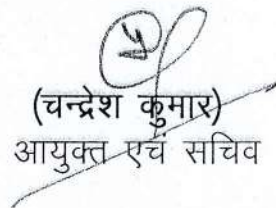 (चन्द्रेश कुमार)
आयुक्त एवं सचिव